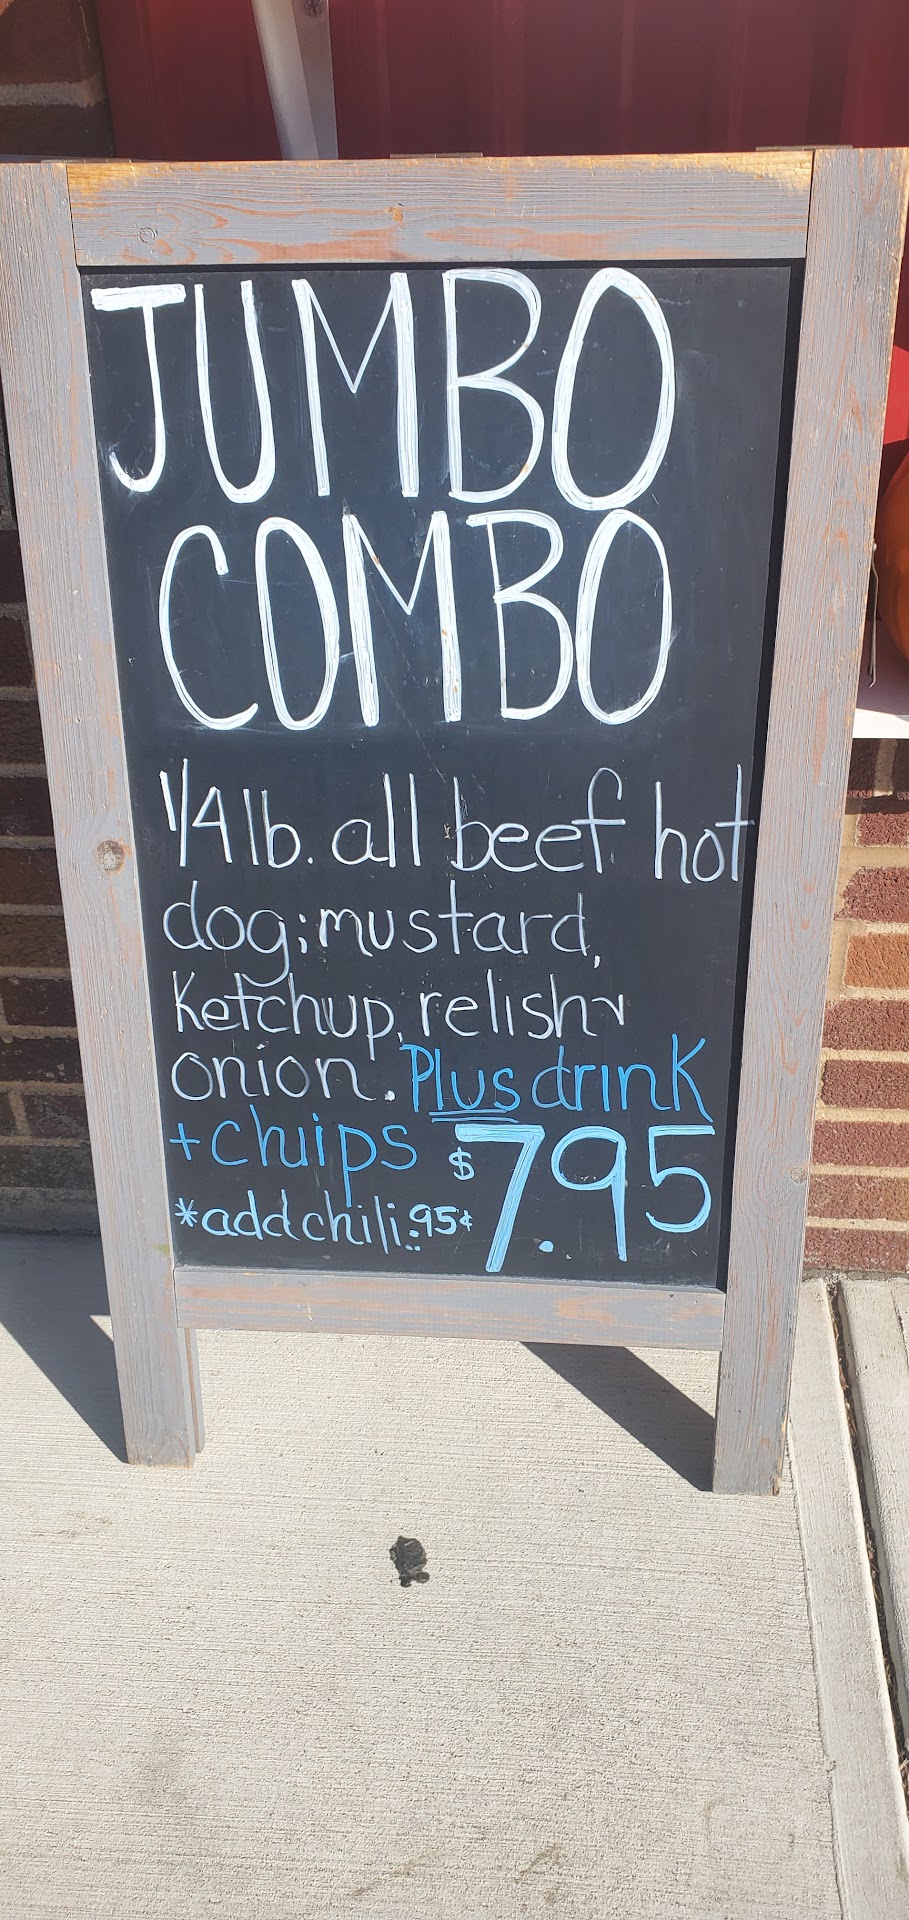 JUMBO
COMBO
1/4 lb. all beef hot
dog; mustard,
Ketchup, relish &
onion. Plus drink
+ chuips $7.95
*add chili .95¢